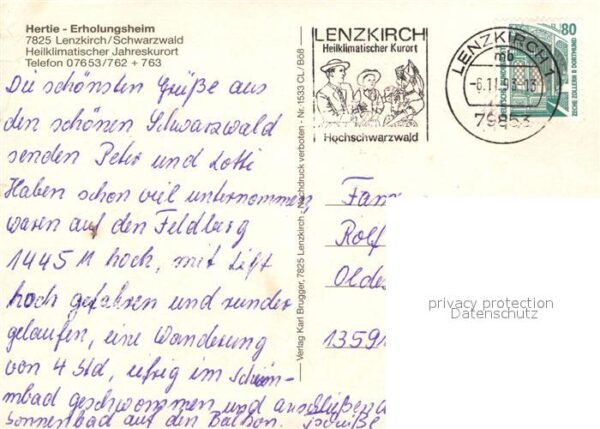 Hertie - Erholungsheim
7825 Lenzkirch/Schwarzwald
Heilklimatischer Jahreskurort
Telefon 07653/762 + 763
Die schönsten Grüße aus
den schönen Schwarzwald
senden Peter und Lotti
Haben schon viel unternommen,
waren auf den Feldberg
1445 M hoch, mit Lift
hoch gefahren und runder
gelaufen, eine Wanderung
von 4 Std, eifrig im Schwim-
mbad geschwommen und anschließend
Sonnenbad auf den Balkon.
Verlag Karl Brugger, 7825 Lenzkirch - Nachdruck verboten - Nr. 1533 CL/B68
LENZKIRCH
Heilklimatischer Kurort
Hochschwarzwald
LENZKIRCH 1
mb
-6.11.93-18
79853
80
ZECHE ZOLLERN II DORTMUND
Fam
Rolf
Olde
1359
privacy protection
Datenschutz